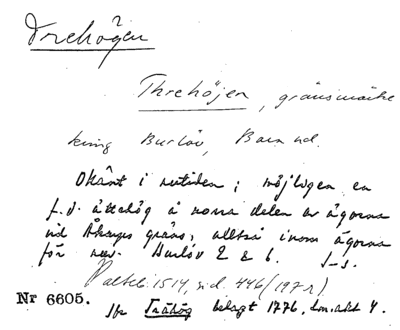 Trehögen
Threhöjen, gränsmärke
kring Burlöv, Bara hd.
Okänt i nutiden; möjligen en
f. d. ättehög å norra delen av ägorna
vid Åkarps gräns, alltså inom ägorna
för nuv. Burlöv 2 & 6.
1514, s. d. 446 (197 r)
Nr 6605.
Jfr Trähög belagt 1776, Lm. akt 4.